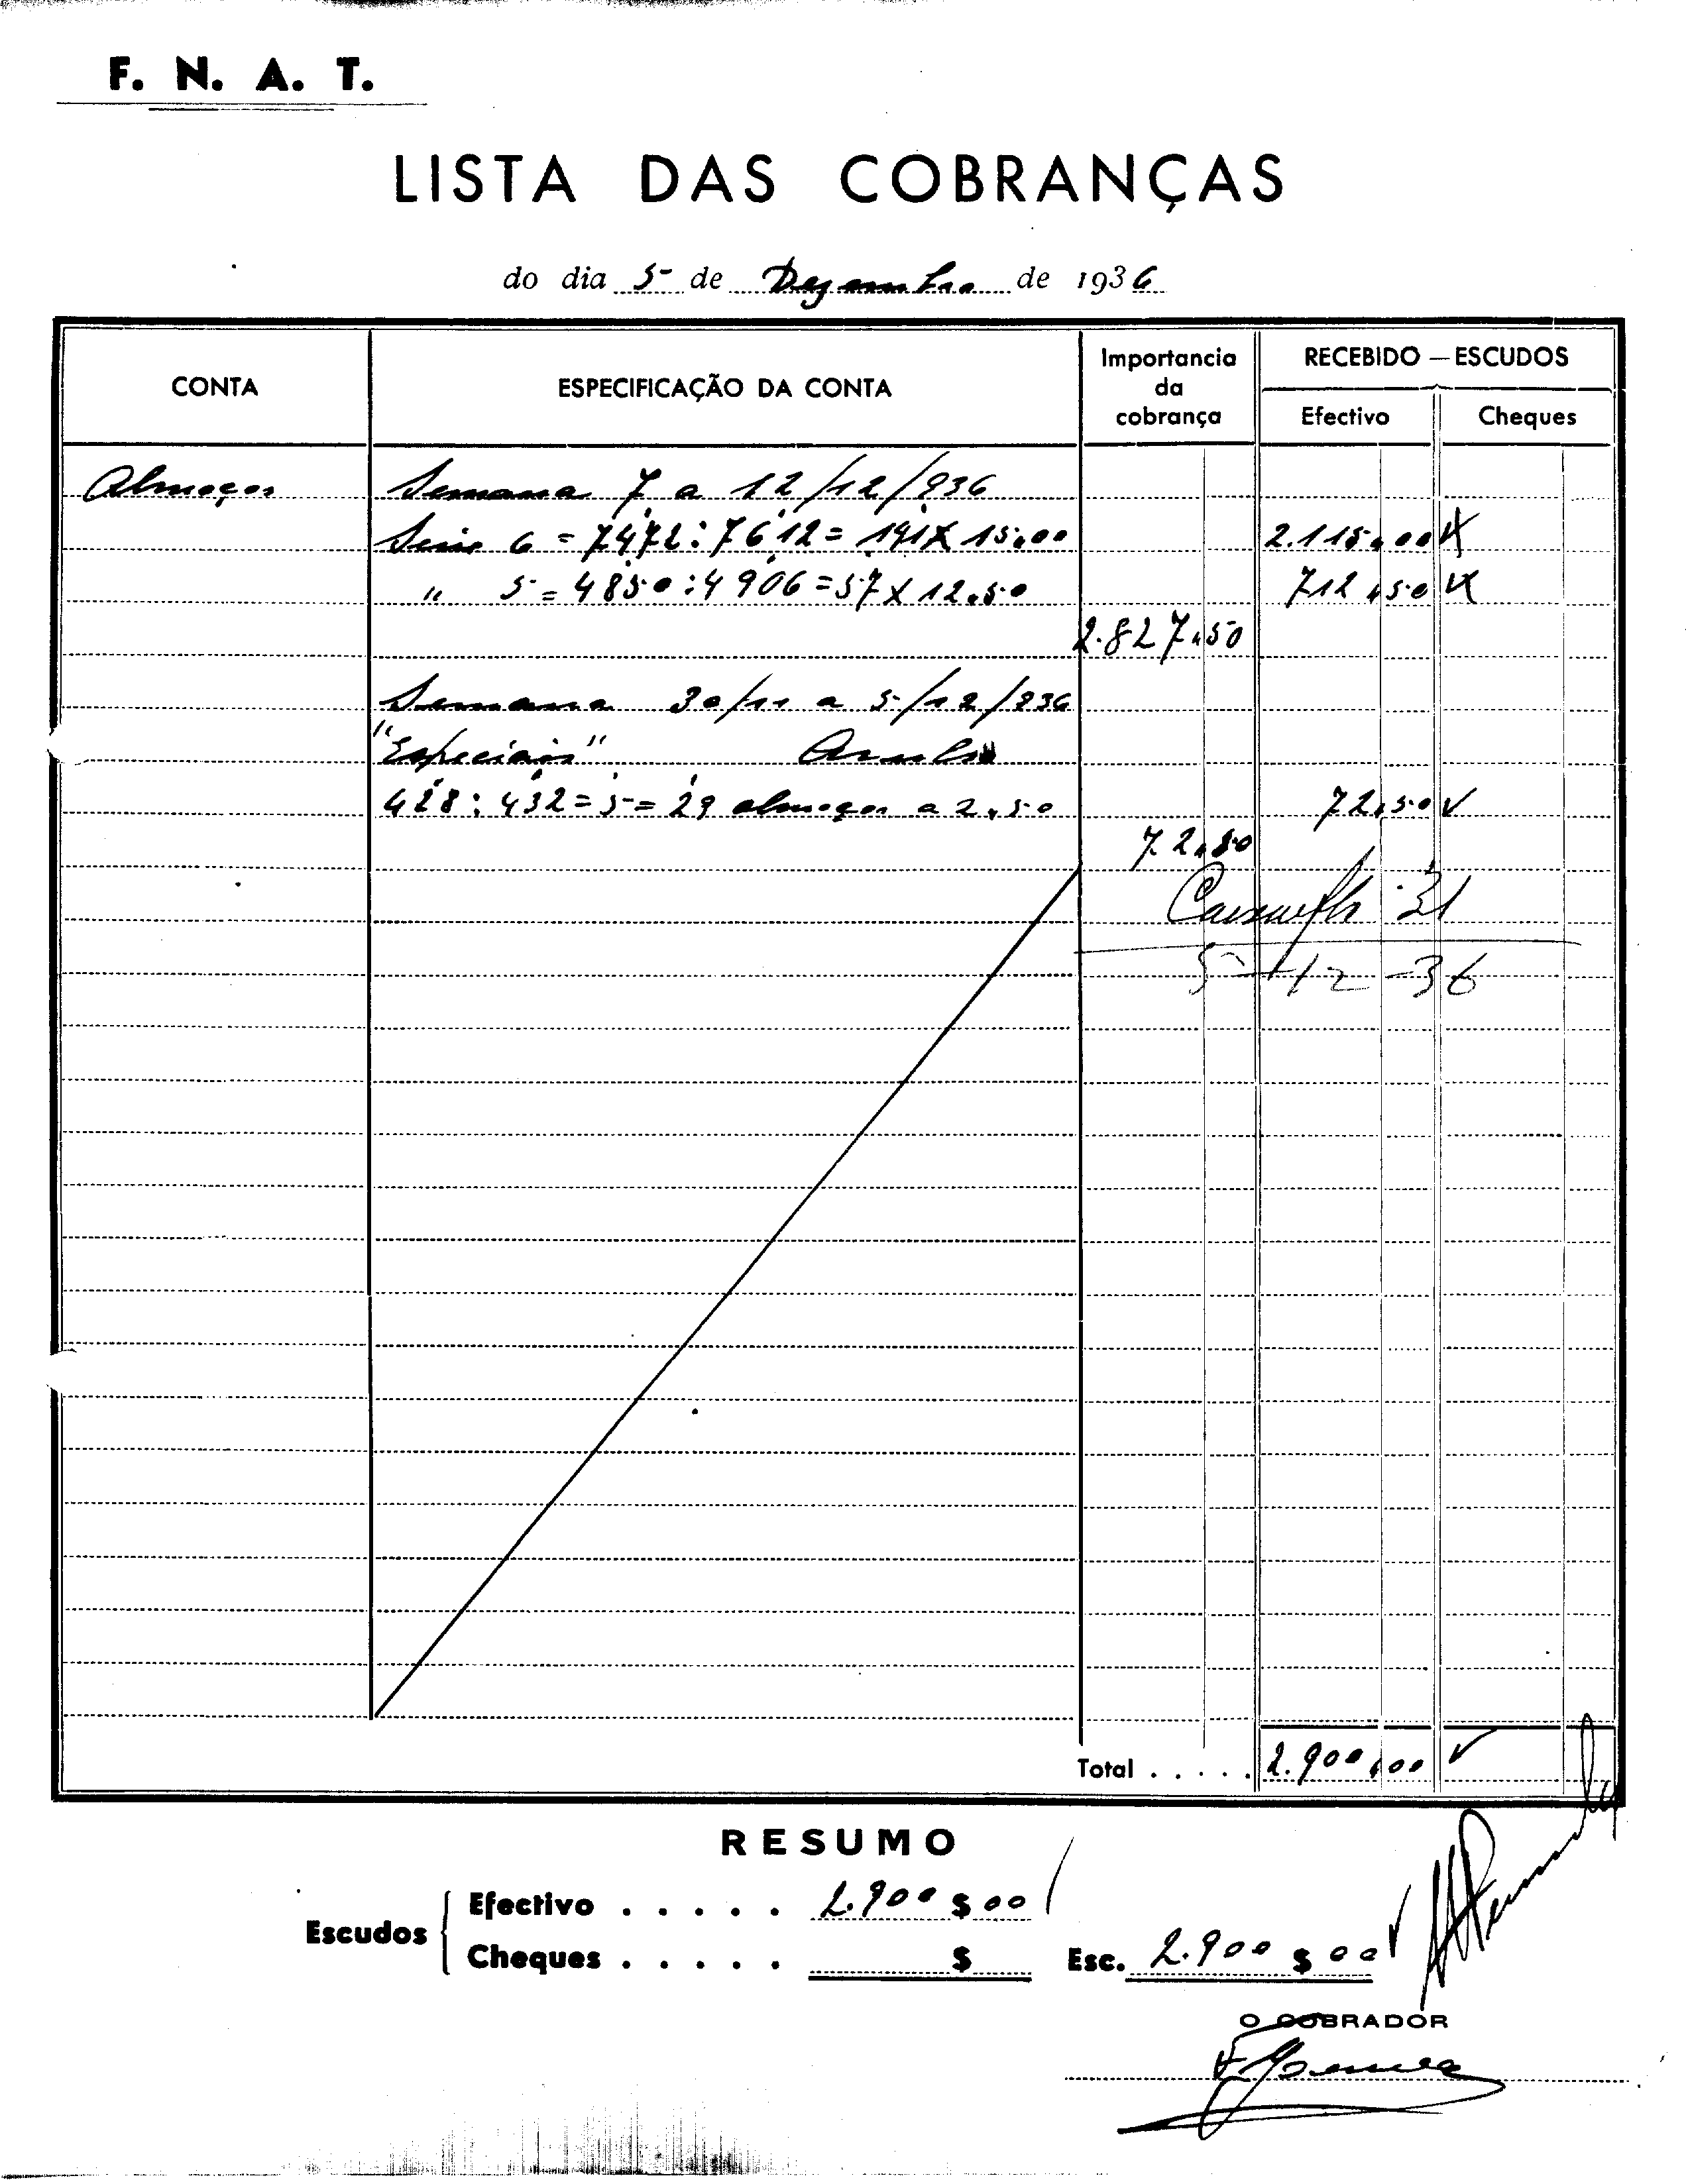 F. N. A. T.
LISTA DAS COBRANÇAS
do dia 5 de Dezembro de 1936
CONTA
ESPECIFICAÇÃO DA CONTA
Importancia da cobrança
RECEBIDO — ESCUDOS
Efectivo
Cheques
Almoços Semana 7 a 12/12/936
Serie 6 = 7472 : 7612 = 141 X 15,00 2.115,00
" 5 = 4850 : 4906 = 57 X 12,50 712,50
2.827,50
Semana 30/11 a 5/12/936
"Especiais"
428 : 432 = 5 = 29 almoços a 2,50 72,50
72,50
31
5-12-36
Total . . . . . 2.900,00
RESUMO
Escudos
Efectivo . . . . . 2.900$00
Cheques . . . . . $
Esc. 2.900$00
O COBRADOR